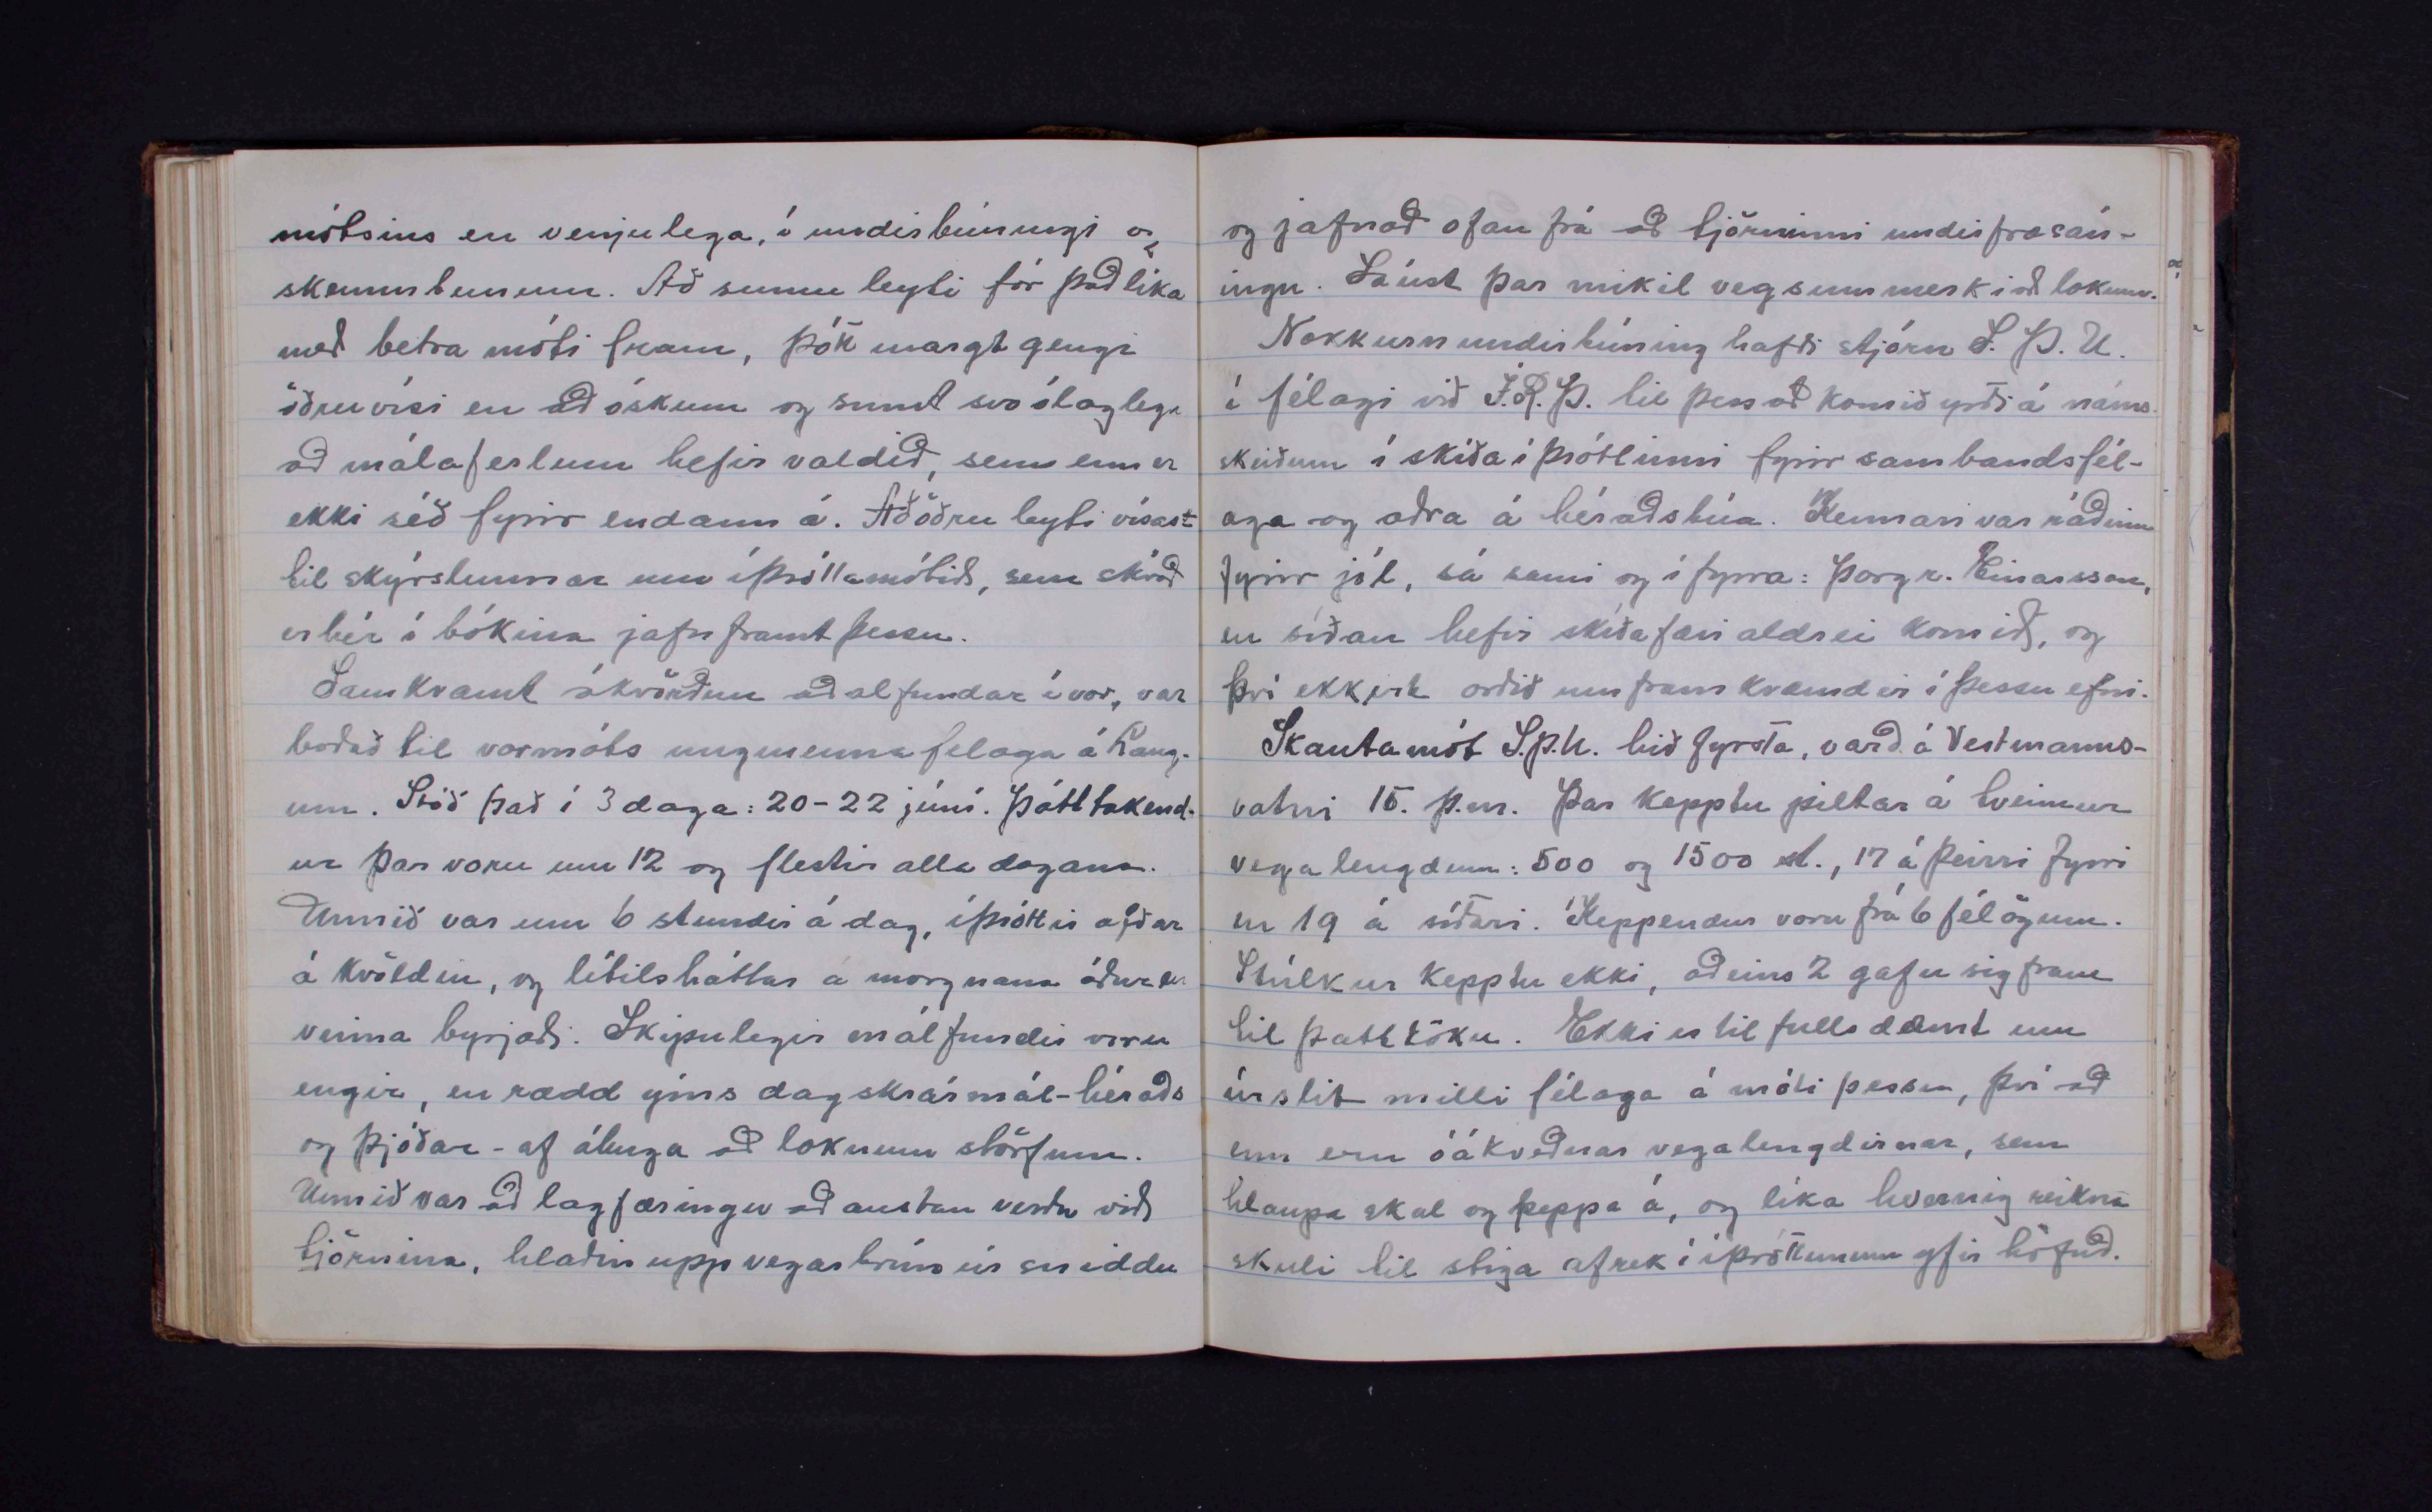 mótsins en venjulega, í undirbúningi og
skemmtunum. Að sumu leyti fór það líka
með betra móti fram, þótt margt gengi
öðruvísi en að óskum og sumt svo ólaglega
að málaferlum hefir valdið, sem enn er
ekki séð fyrir endann á. Að öðru leyti vísast
til skýrslunnar um íþróttamótið, sem skráð
er hér í bókina jafnframt þessu.
Samkvæmt ákvörðun aðalfundar í vor, var
boðað til vormóts ungmennafélaga á Laug-
um. Stóð það í 3 daga: 20-22 júní. Þátttakend-
ur þar voru um 12 og flestir alla dagana.
Unnið var um 6 stundir á dag, íþróttir æfðar
á kvöldin, og lítilsháttar á morgnana áður en
vinna byrjaði. Skipulegir málfundir voru
engir, en rædd ýms dagskrármál - héraðs
og þjóðar - af áhuga að loknum störfum.
Unnið var að lagfæringu að austan verðu við
tjörnina, hlaðin upp vegarbrún úr sniddu
og jafnað ofan frá að tjörninni undir fræsán-
ingu. Sáust þar mikil vegsummerki að lokum.
Nokkurn undirbúning hafði stjórn S. Þ. U.
í félagi við Í.R.Þ. til þess að komið yrði á náms-
skeiðum í skíðaíþróttinni fyrir sambandsfél-
aga og aðra á héraðsbúa. Kennari var ráðinn
fyrir jól, sá sami og í fyrra: Þorgr. Einarsson,
en síðan hefir skíðafæri aldrei komið, og
því ekkert orðið um framkvæmdir í þessu efni.
Skautamót S.Þ.U. hið fyrsta, varð á Vestmanns-
vatni 15. þ.m. Þar kepptu piltar á tveimur
vegalengdum: 500 og 1500 st., 17 á þeirri fyrri
en 19 á síðari. Keppendur voru frá 6 félögum.
Stúlkur kepptu ekki, aðeins 2 gáfu sig fram
til þátttöku. Ekki er til fulls dæmt um
úrslit milli félaga á móti þessu, því að
enn eru óákveðnar vegalengdirnar, sem
hlaupa skal og keppa á, og líka hvernig reikna
skuli til stiga afrek í íþróttunum yfir höfuð.